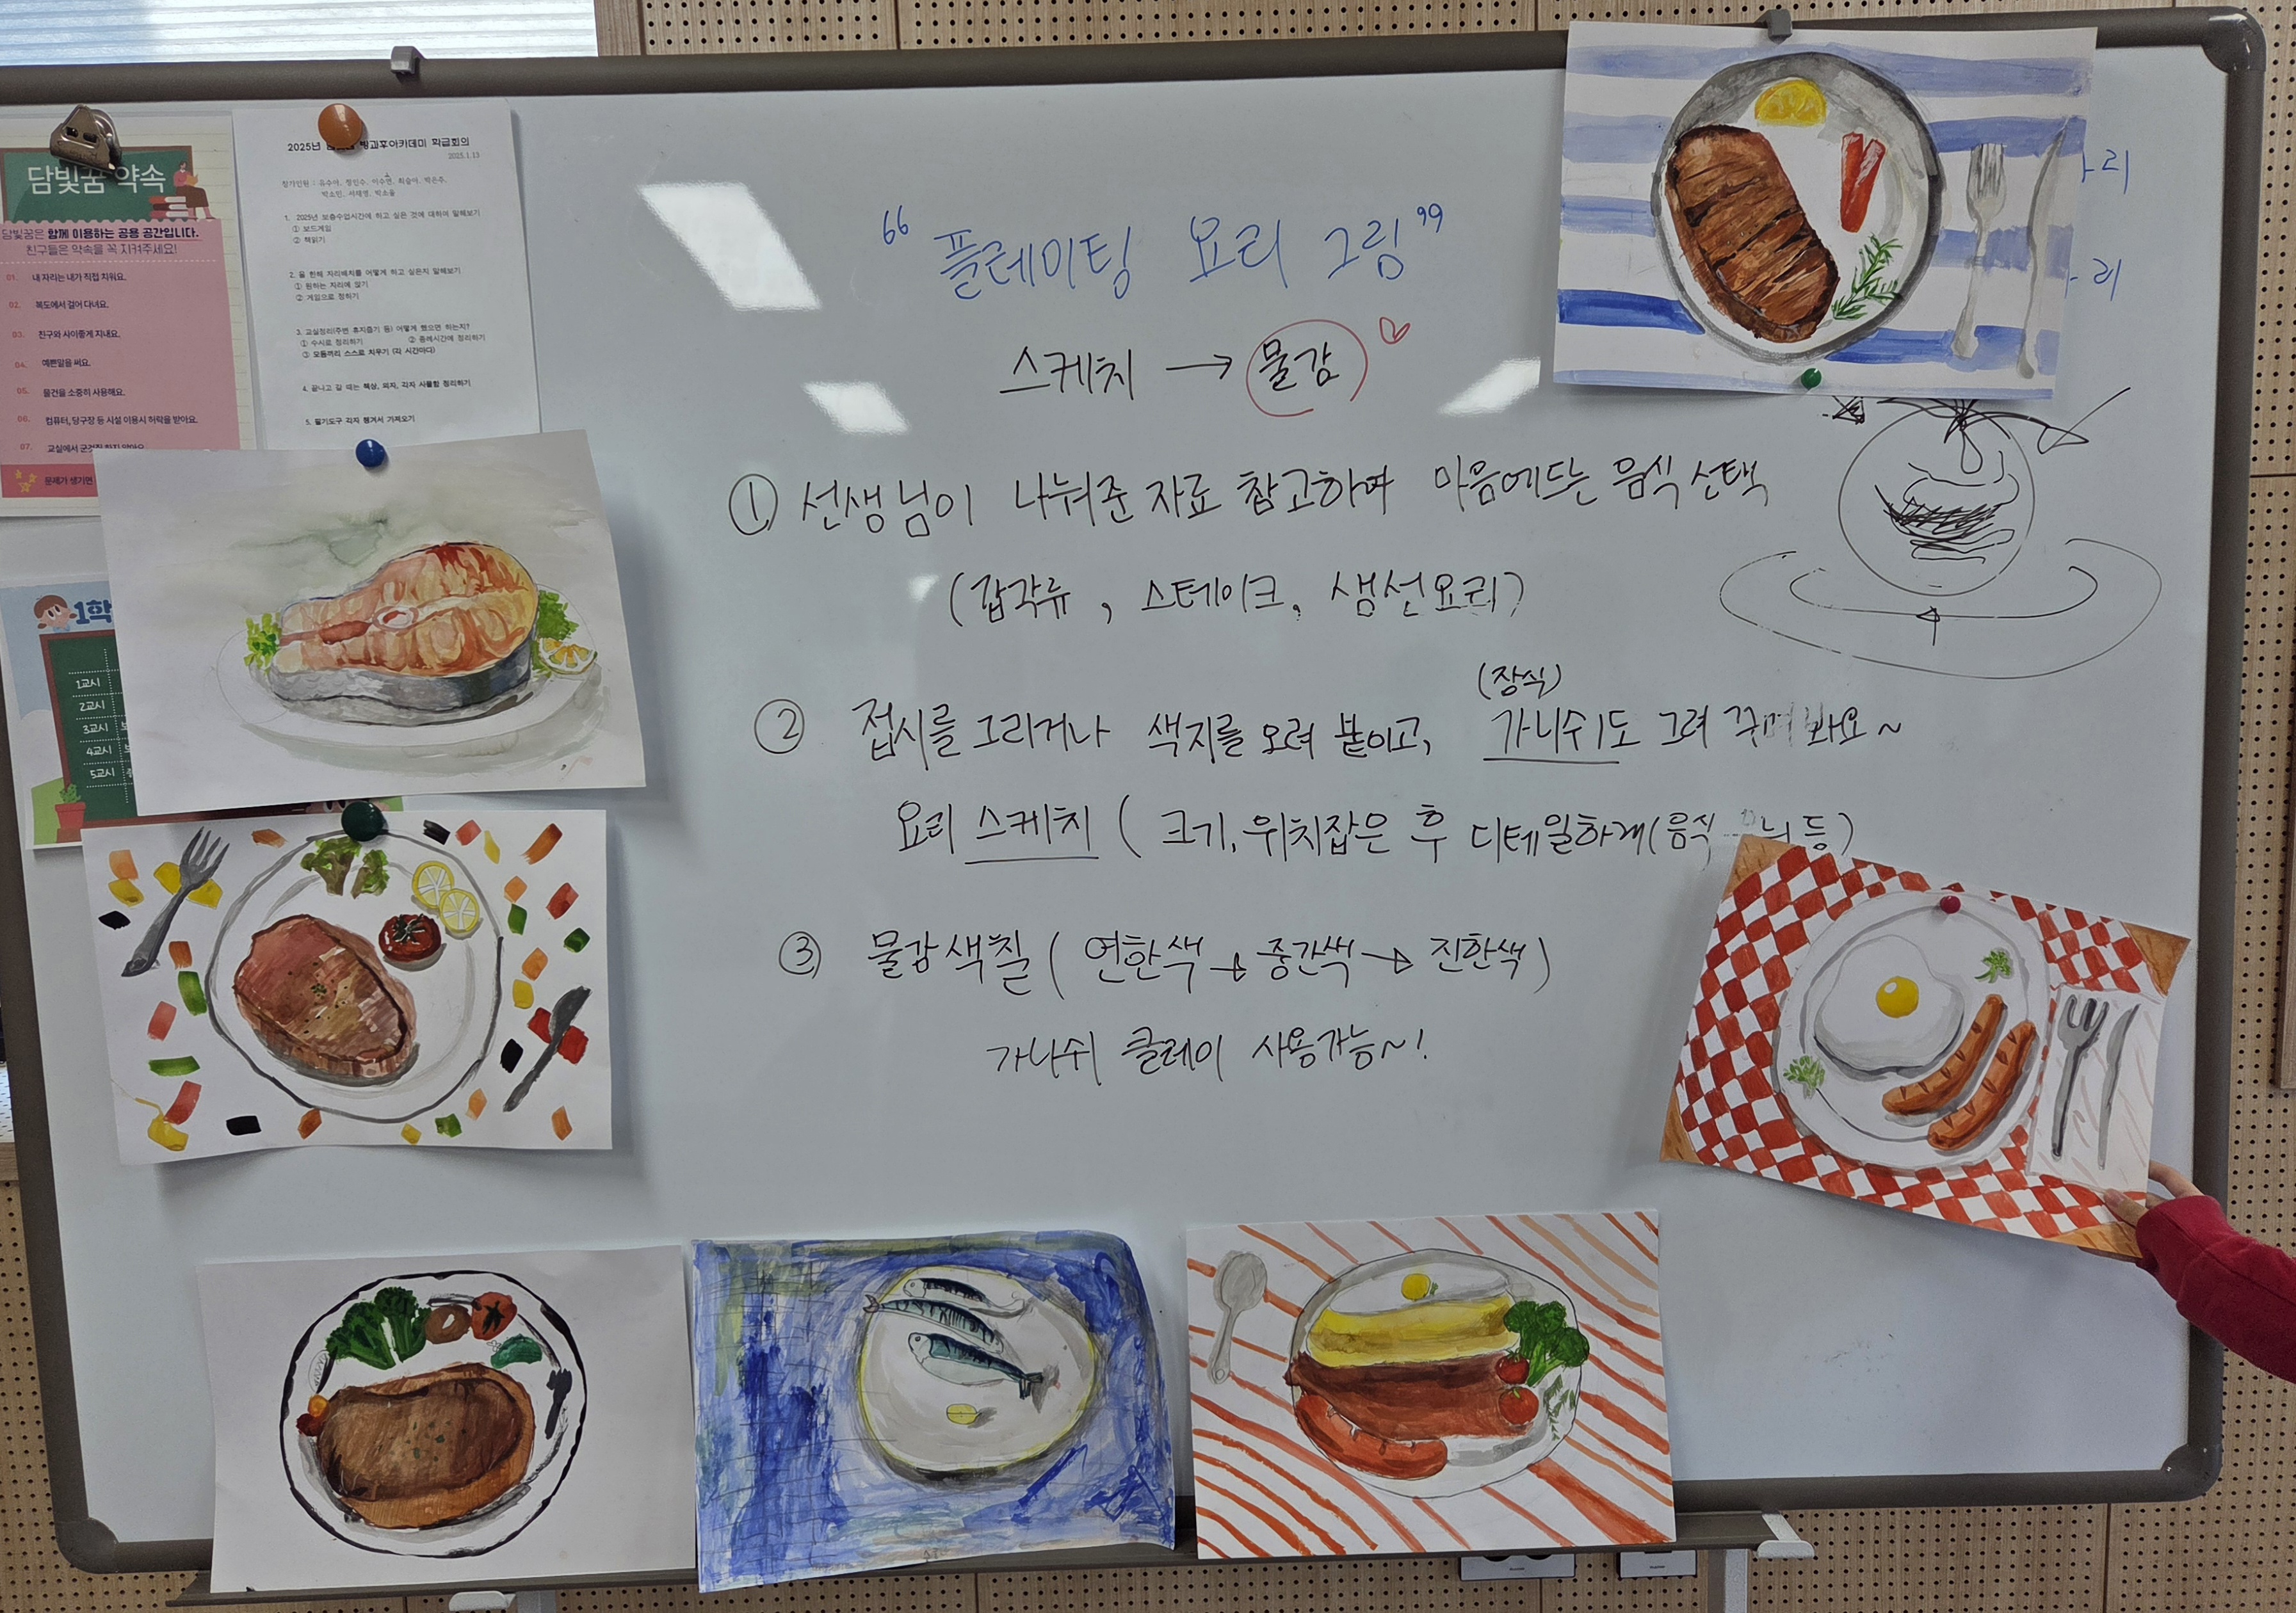 담빛꿈 약속
담빛꿈은 함께 이용하는 공용 공간입니다.
친구들은 약속을 꼭 지켜주세요!
01. 내 자리는 내가 직접 치워요.
02. 복도에서 걸어 다녀요.
03. 친구와 사이좋게 지내요.
04. 예쁜말을 써요.
05. 물건을 소중히 사용해요.
06. 컴퓨터, 당구장 등 시설 이용시 허락을 받아요.
07. 교실에서
문제가 생기면
2025년 방과후아카데미 학급회의
2025.1.13
1. 2025년 보충수업시간에 하고 싶은 것에 대하여 말해보기
① 보드게임
② 책읽기
2. 올 한해 자리배치를 어떻게 하고 싶은지 말해보기
① 원하는 자리에 앉기
② 게임으로 정하기
3. 교실정리(주변 휴지줍기 등) 어떻게 했으면 하는지?
① 수시로 정리하기 ② 종례시간에 정리하기
③ 모둠끼리 스스로 치우기 (각 시간마다)
4. 끝나고 갈 때는 책상, 의자, 각자 사물함 정리하기
5. 필기도구 각자 챙겨서 가져오기
1학
1교시
2교시
3교시
4교시
5교시
"플레이팅 요리 그림"
스케치 → 물감
① 선생님이 나눠준 자료 참고하며 마음에드는 음식 선택
(갑각류, 스테이크, 생선요리)
(장식)
② 접시를 그리거나 색지를 오려 붙이고, 가니쉬도 그려 꾸며 봐요~
요리 스케치 ( 크기, 위치잡은 후 디테일하게(음식 등)
③ 물감색칠 ( 연한색 → 중간색 → 진한색 )
가나쉬 클레이 사용가능~!
리
리